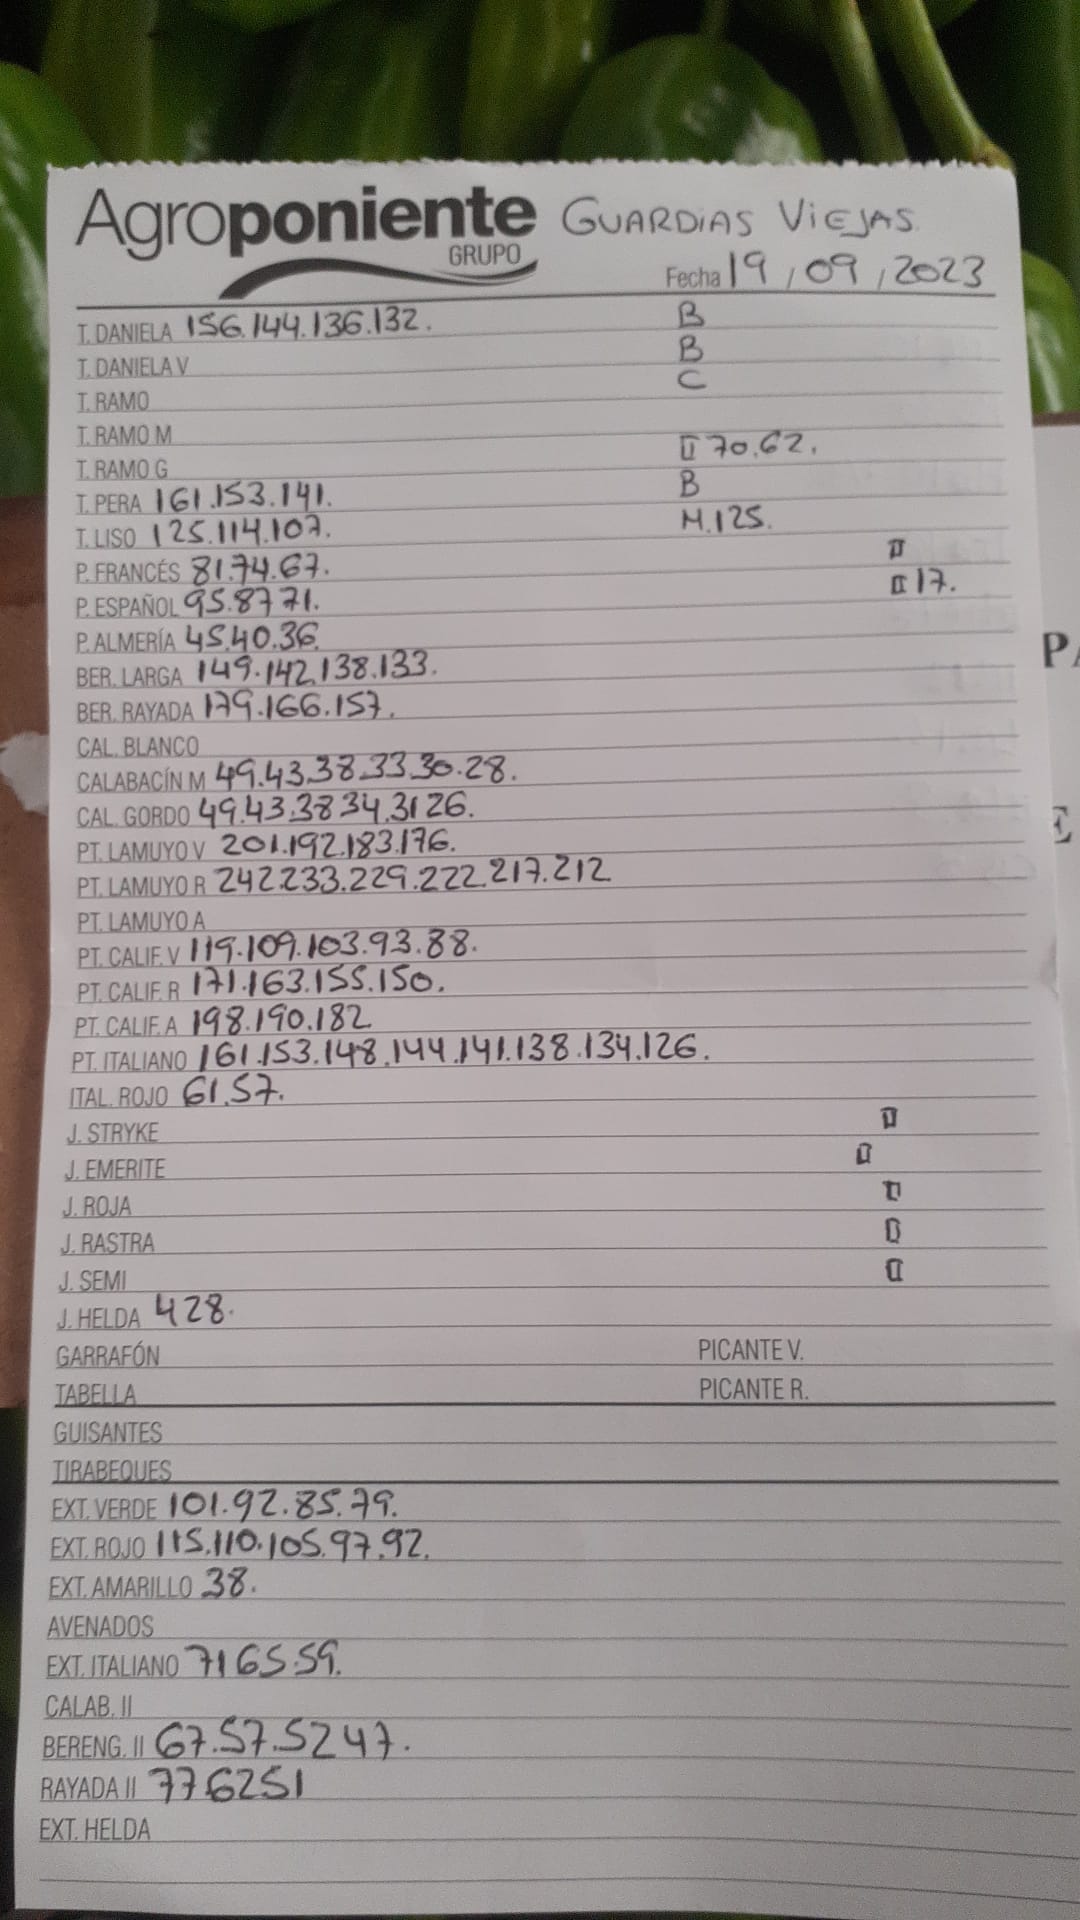 Agroponiente GUARDIAS VIEJAS.
GRUPO
Fecha 19/09/2023
T. DANIELA 156.144.136.132. B
T. DANIELA V B
T. RAMO C
T. RAMO M
T. RAMO G II 70.62.
T. PERA 161.153.141. B
T. LISO 125.114.107. M.125.
P. FRANCÉS 81.74.67. II
P. ESPAÑOL 95.87 71. II 17.
P. ALMERÍA 45.40.36.
BER. LARGA 149.142.138.133.
BER. RAYADA 179.166.157.
CAL. BLANCO
CALABACÍN M 49.43.38.33.30.28.
CAL. GORDO 49.43.38 34.31 26.
PT. LAMUYO V 201.192.183.176.
PT. LAMUYO R 242.233.229.222.217.212
PT. LAMUYO A
PT. CALIF. V 119.109.103.93.88.
PT. CALIF. R 171.163.155.150.
PT. CALIF. A 198.190.182
PT. ITALIANO 161.153.148.144.141.138.134.126.
ITAL. ROJO 61.57.
J. STRYKE II
J. EMERITE II
J. ROJA II
J. RASTRA II
J. SEMI II
J. HELDA 428.
GARRAFÓN PICANTE V.
TABELLA PICANTE R.
GUISANTES
TIRABEQUES
EXT. VERDE 101.92.85.79.
EXT. ROJO 115.110.105.97.92.
EXT. AMARILLO 38.
AVENADOS
EXT. ITALIANO 71 65.59.
CALAB. II
BERENG. II 67.57.52 47.
RAYADA II 77 62 51
EXT. HELDA